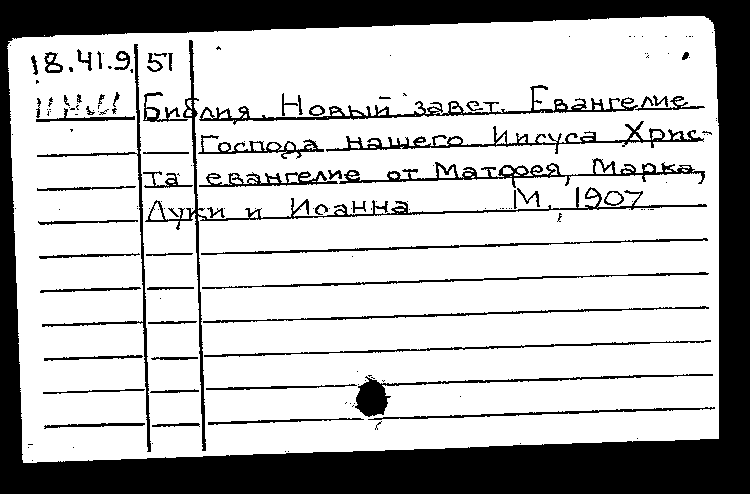 18.41.9. 51
Библия. Новый завет. Евангелие
Господа нашего Иисуса Хрис-
та евангелие от Матфея, Марка,
Луки и Иоанна М., 1907